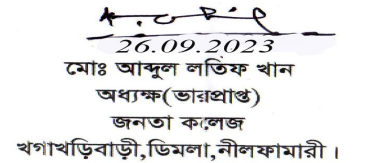 26.09.2023
মোঃ আব্দুল লতিফ খান
অধ্যক্ষ(ভারপ্রাপ্ত)
জনতা কলেজ
খগাখড়িবাড়ী,ডিমলা,নীলফামারী।